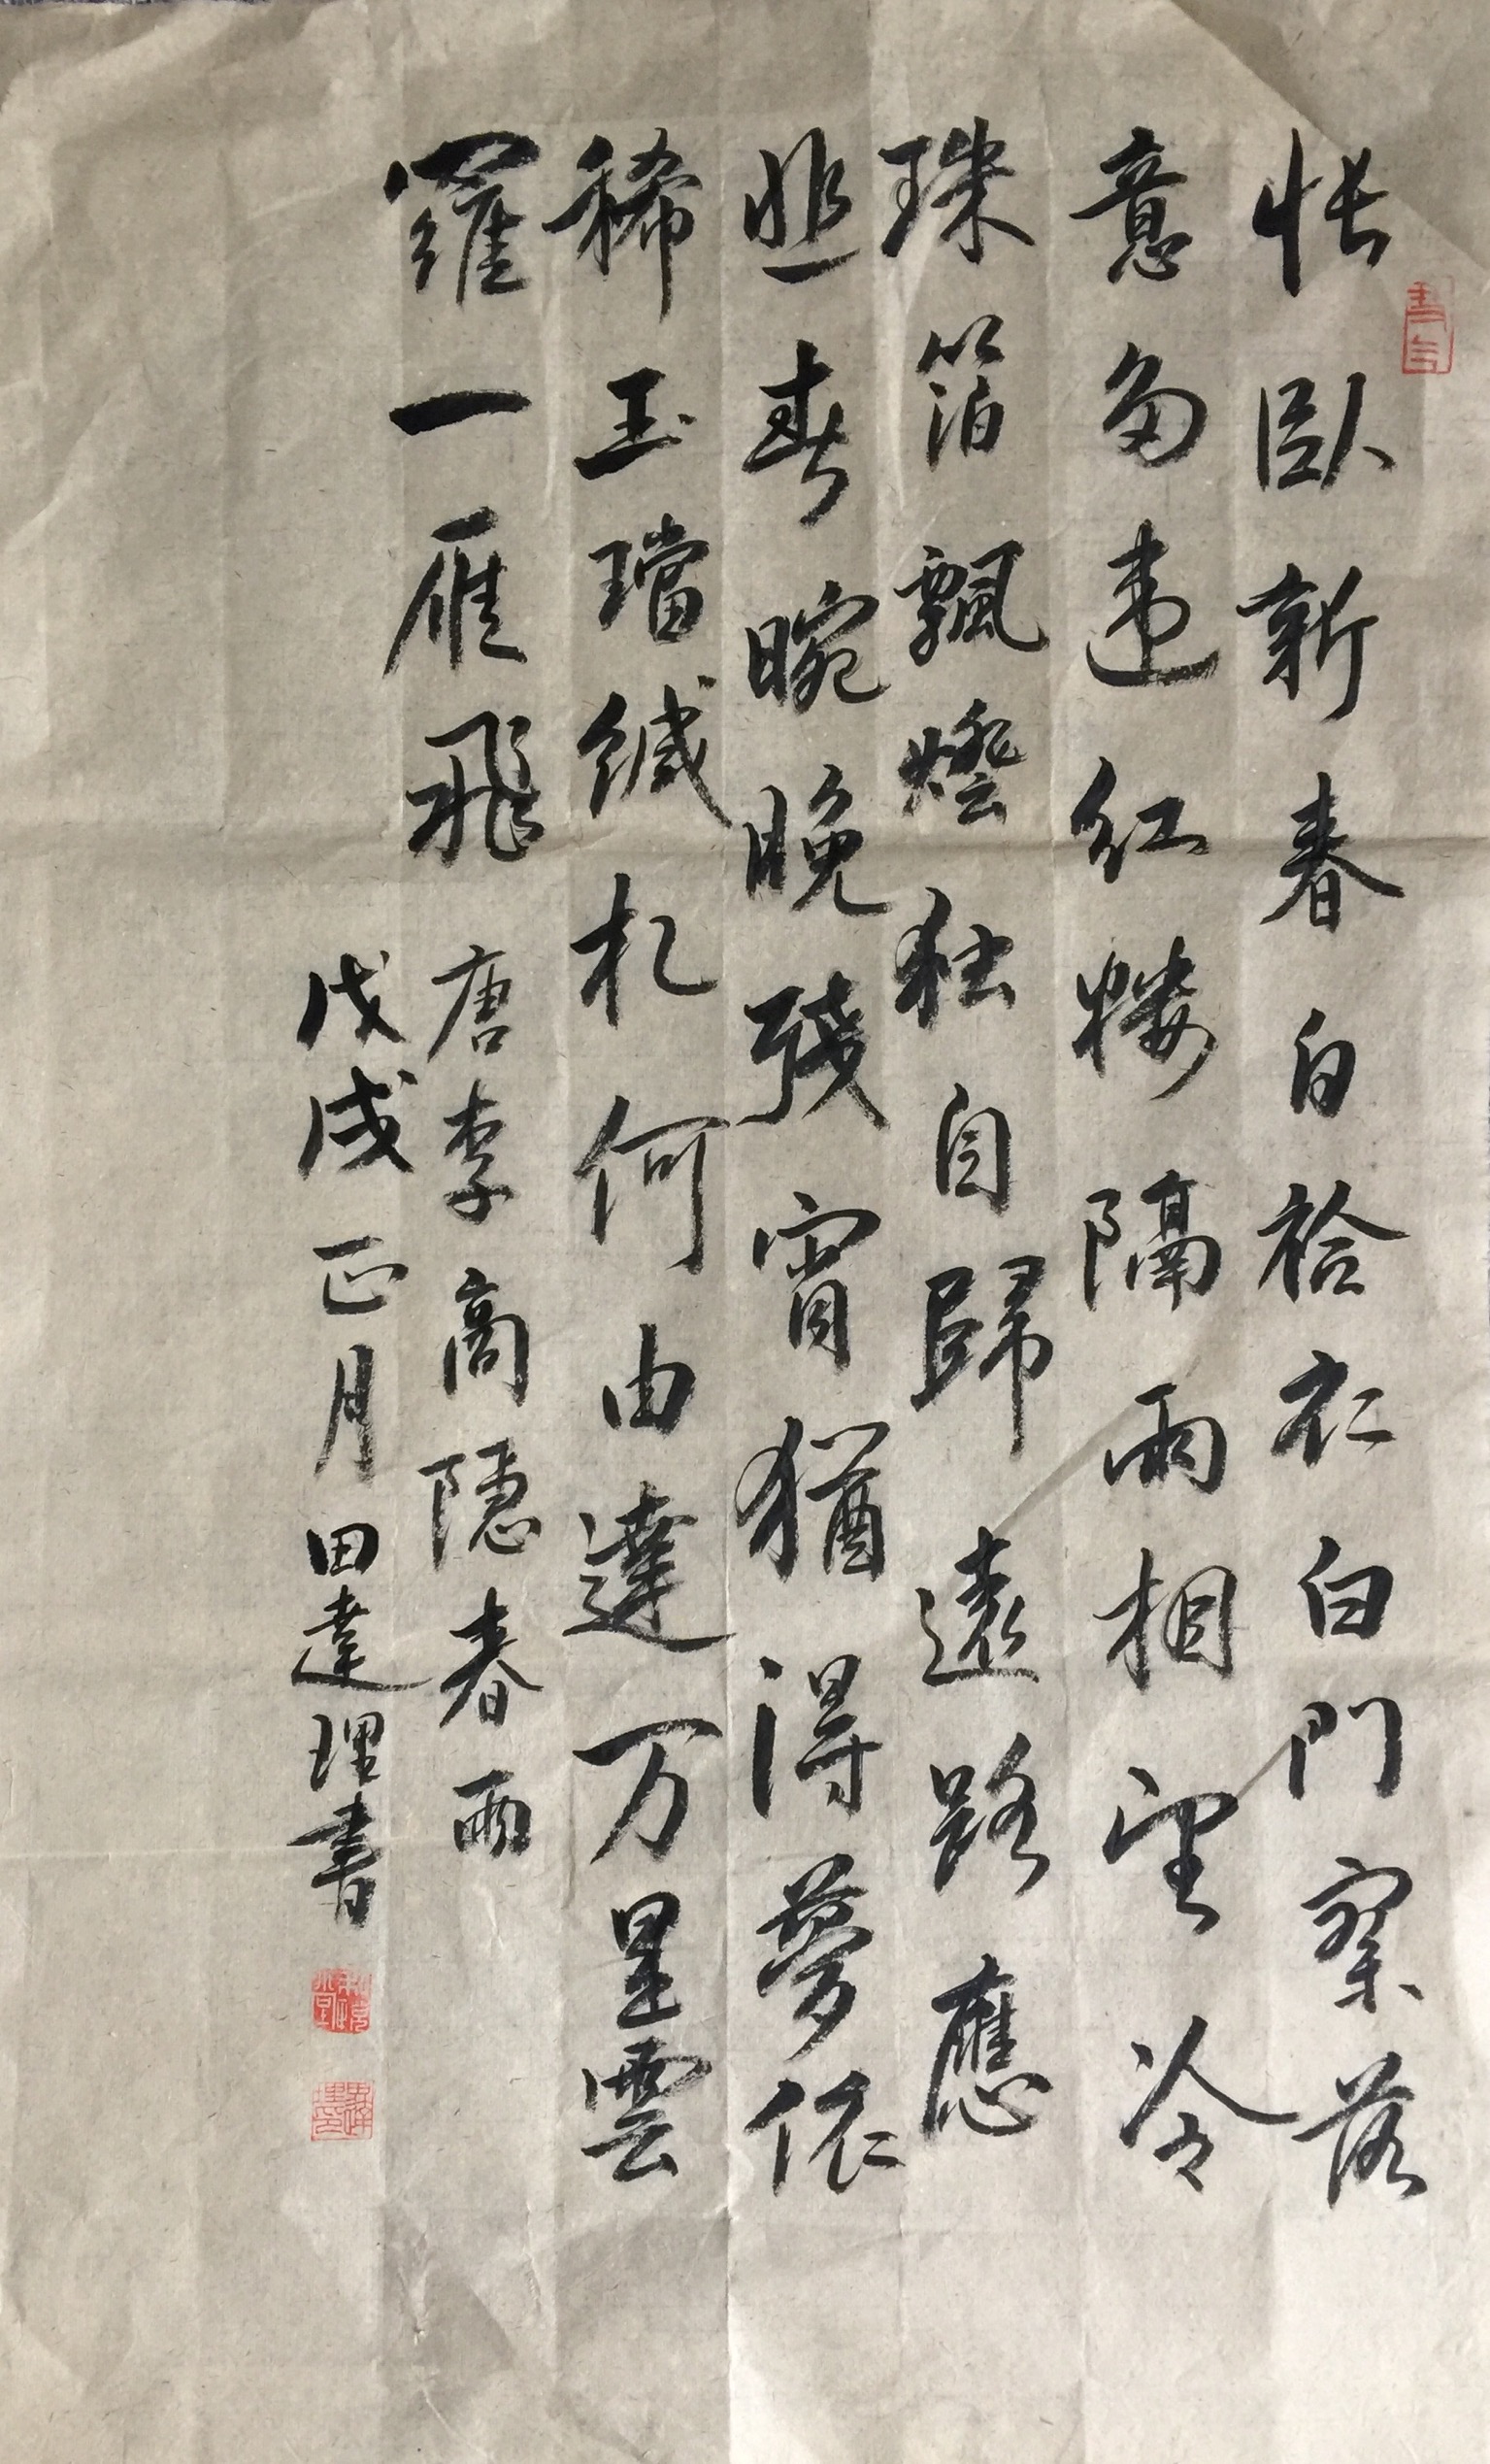 悵臥新春白袷衣白門寥落
意多違红楼隔雨相望冷
珠箔飄燈独自歸遠路應
悲春晼晚殘宵猶得夢依
稀玉璫缄札何由達万里雲
羅一雁飛
唐李商隱春雨
戊戌正月田達理書